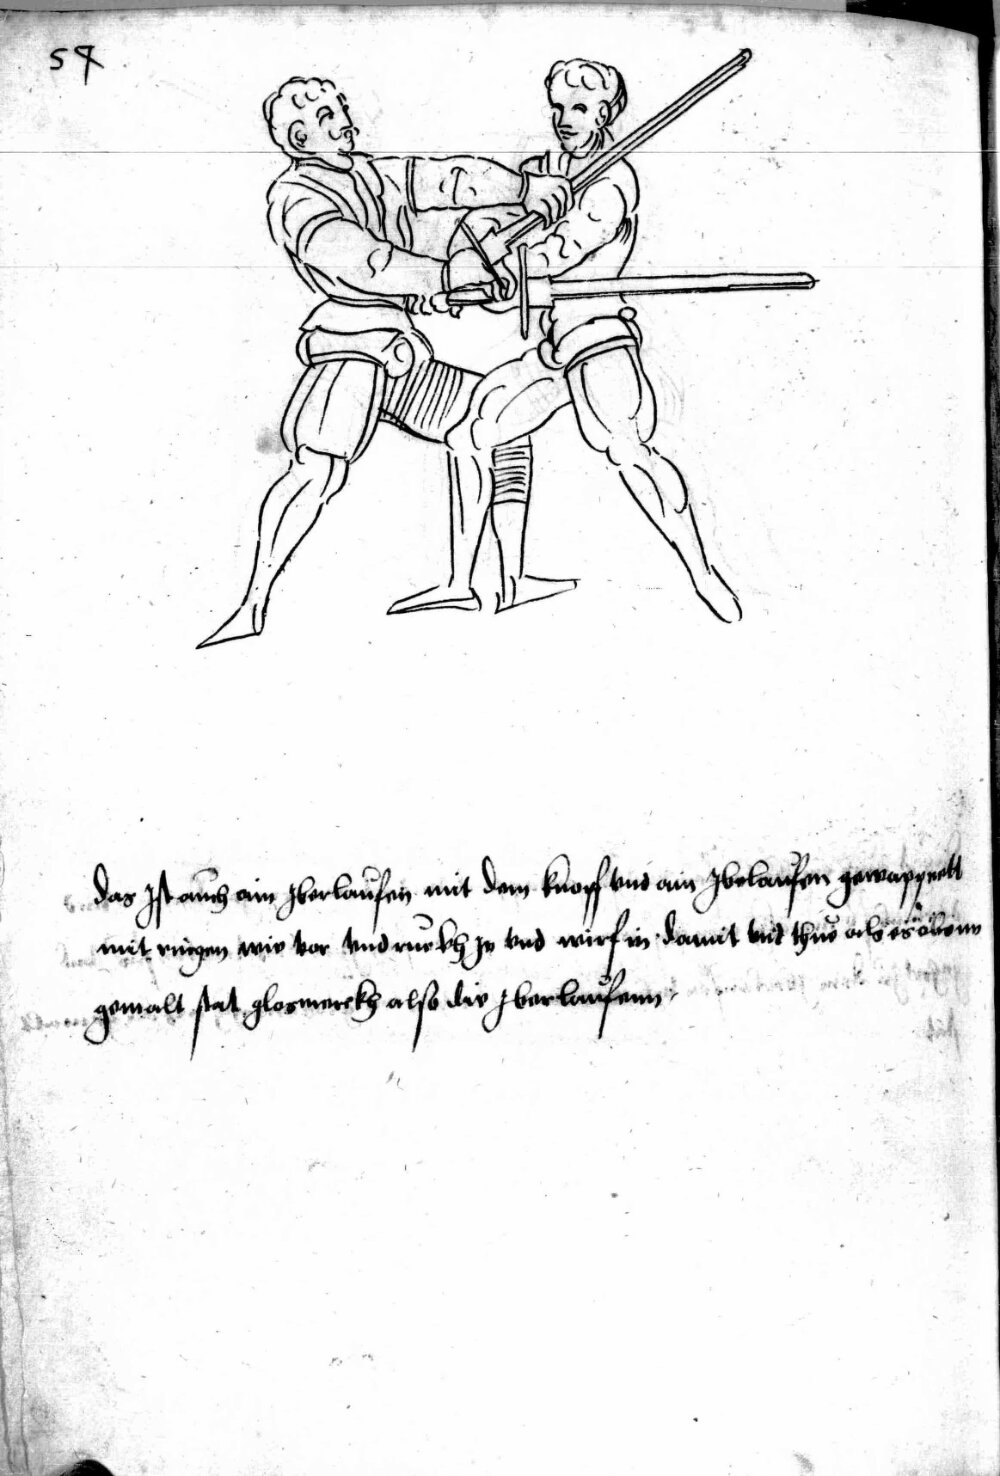 57
das Ist auch ain Iberlaufen mit dem knopff vnd ain Ibelaufen gewappnett
mit ringen wie vor vnd ruckh Je vnd wirf in damit vnd thue als es obenn
gemalt stat glosmerckh also die Iberlaufenn